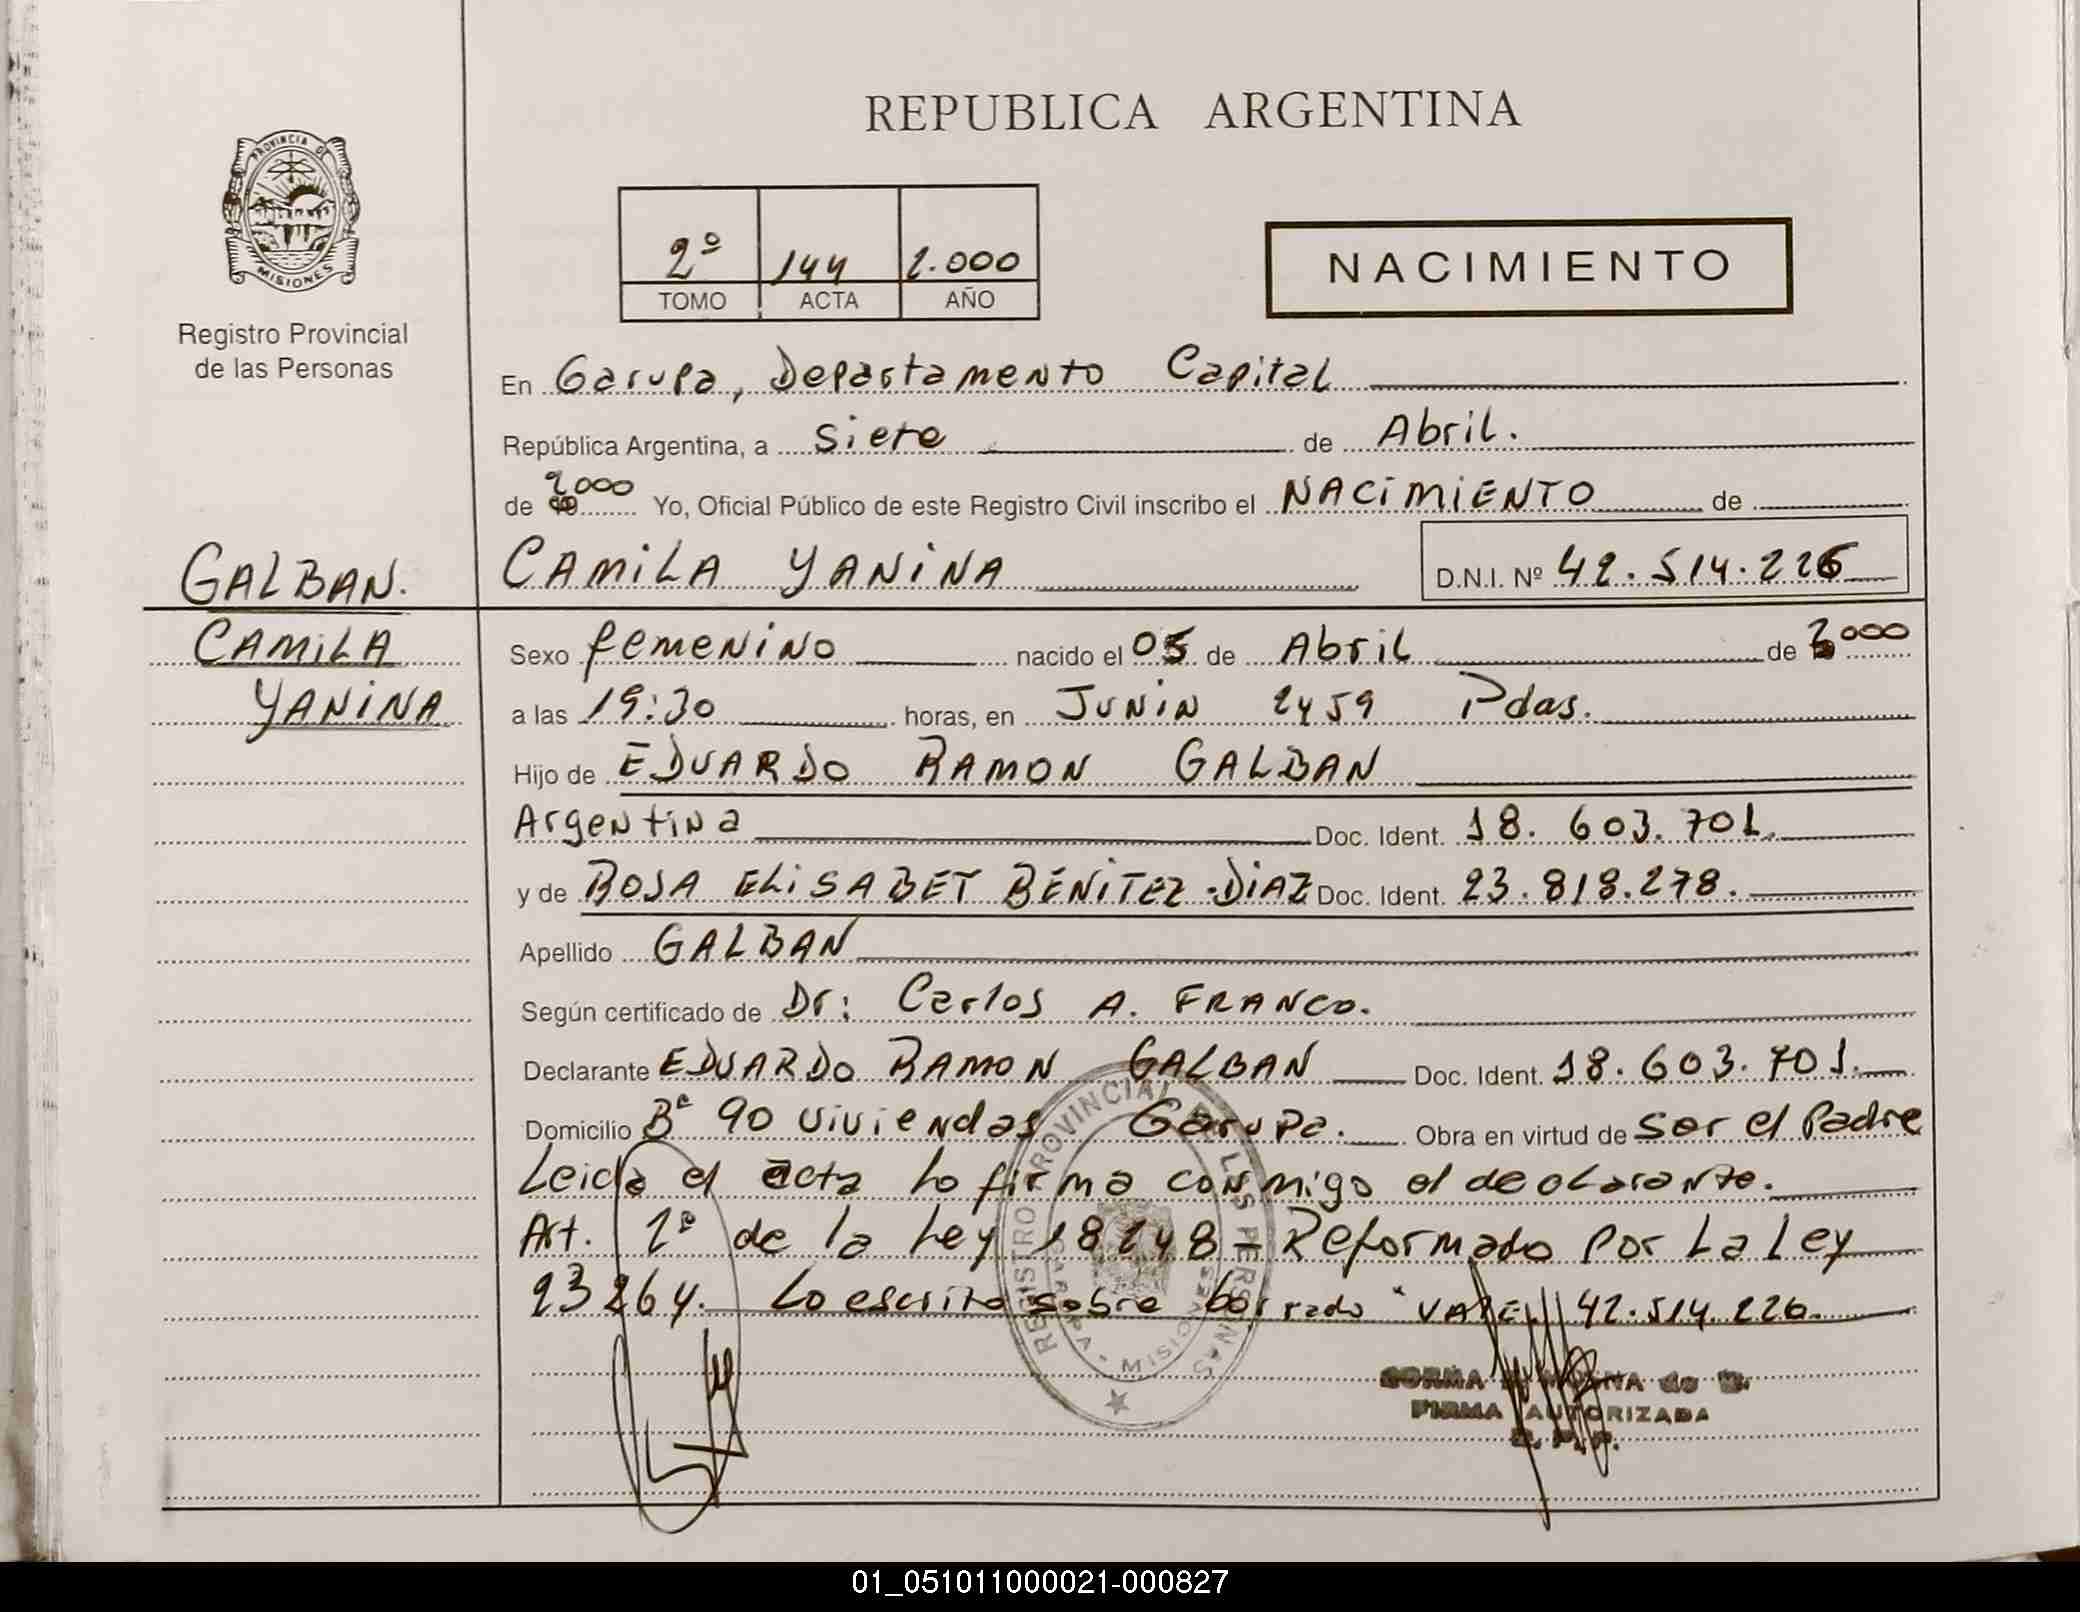 REPUBLICA ARGENTINA
PROVINCIA DE
MISIONES
Registro Provincial
de las Personas
2º 144 2.000
TOMO ACTA AÑO
NACIMIENTO
En Garupa, Departamento Capital
República Argentina, a siete de Abril.
de 2000 Yo, Oficial Público de este Registro Civil inscribo el NACIMIENTO de
GALBAN.
CAMILA YANINA D.N.I. Nº 42.514.226
CAMILA
YANINA
Sexo femenino nacido el 05 de Abril de 2000
a las 19:30 horas, en JUNIN 2459 Pdas.
Hijo de EDUARDO RAMON GALBAN
Argentina Doc. Ident. 18.603.701.
y de ROSA ELISABET BENITEZ-DIAZ Doc. Ident. 23.818.278.
Apellido GALBAN
Según certificado de Dr: Carlos A. FRANCO.
Declarante EDUARDO RAMON GALBAN Doc. Ident. 18.603.701.
Domicilio Bº 90 viviendas Garupa. Obra en virtud de ser el Padre
Leida el acta lo firma conmigo el declarante.
Art. 2º de la Ley 18248 - Reformado Por La Ley
23264. Lo escrito sobre borrado "VALE" 42.514.226.
REGISTRO PROVINCIAL DE LAS PERSONAS
MISIONES
FIRMA AUTORIZADA